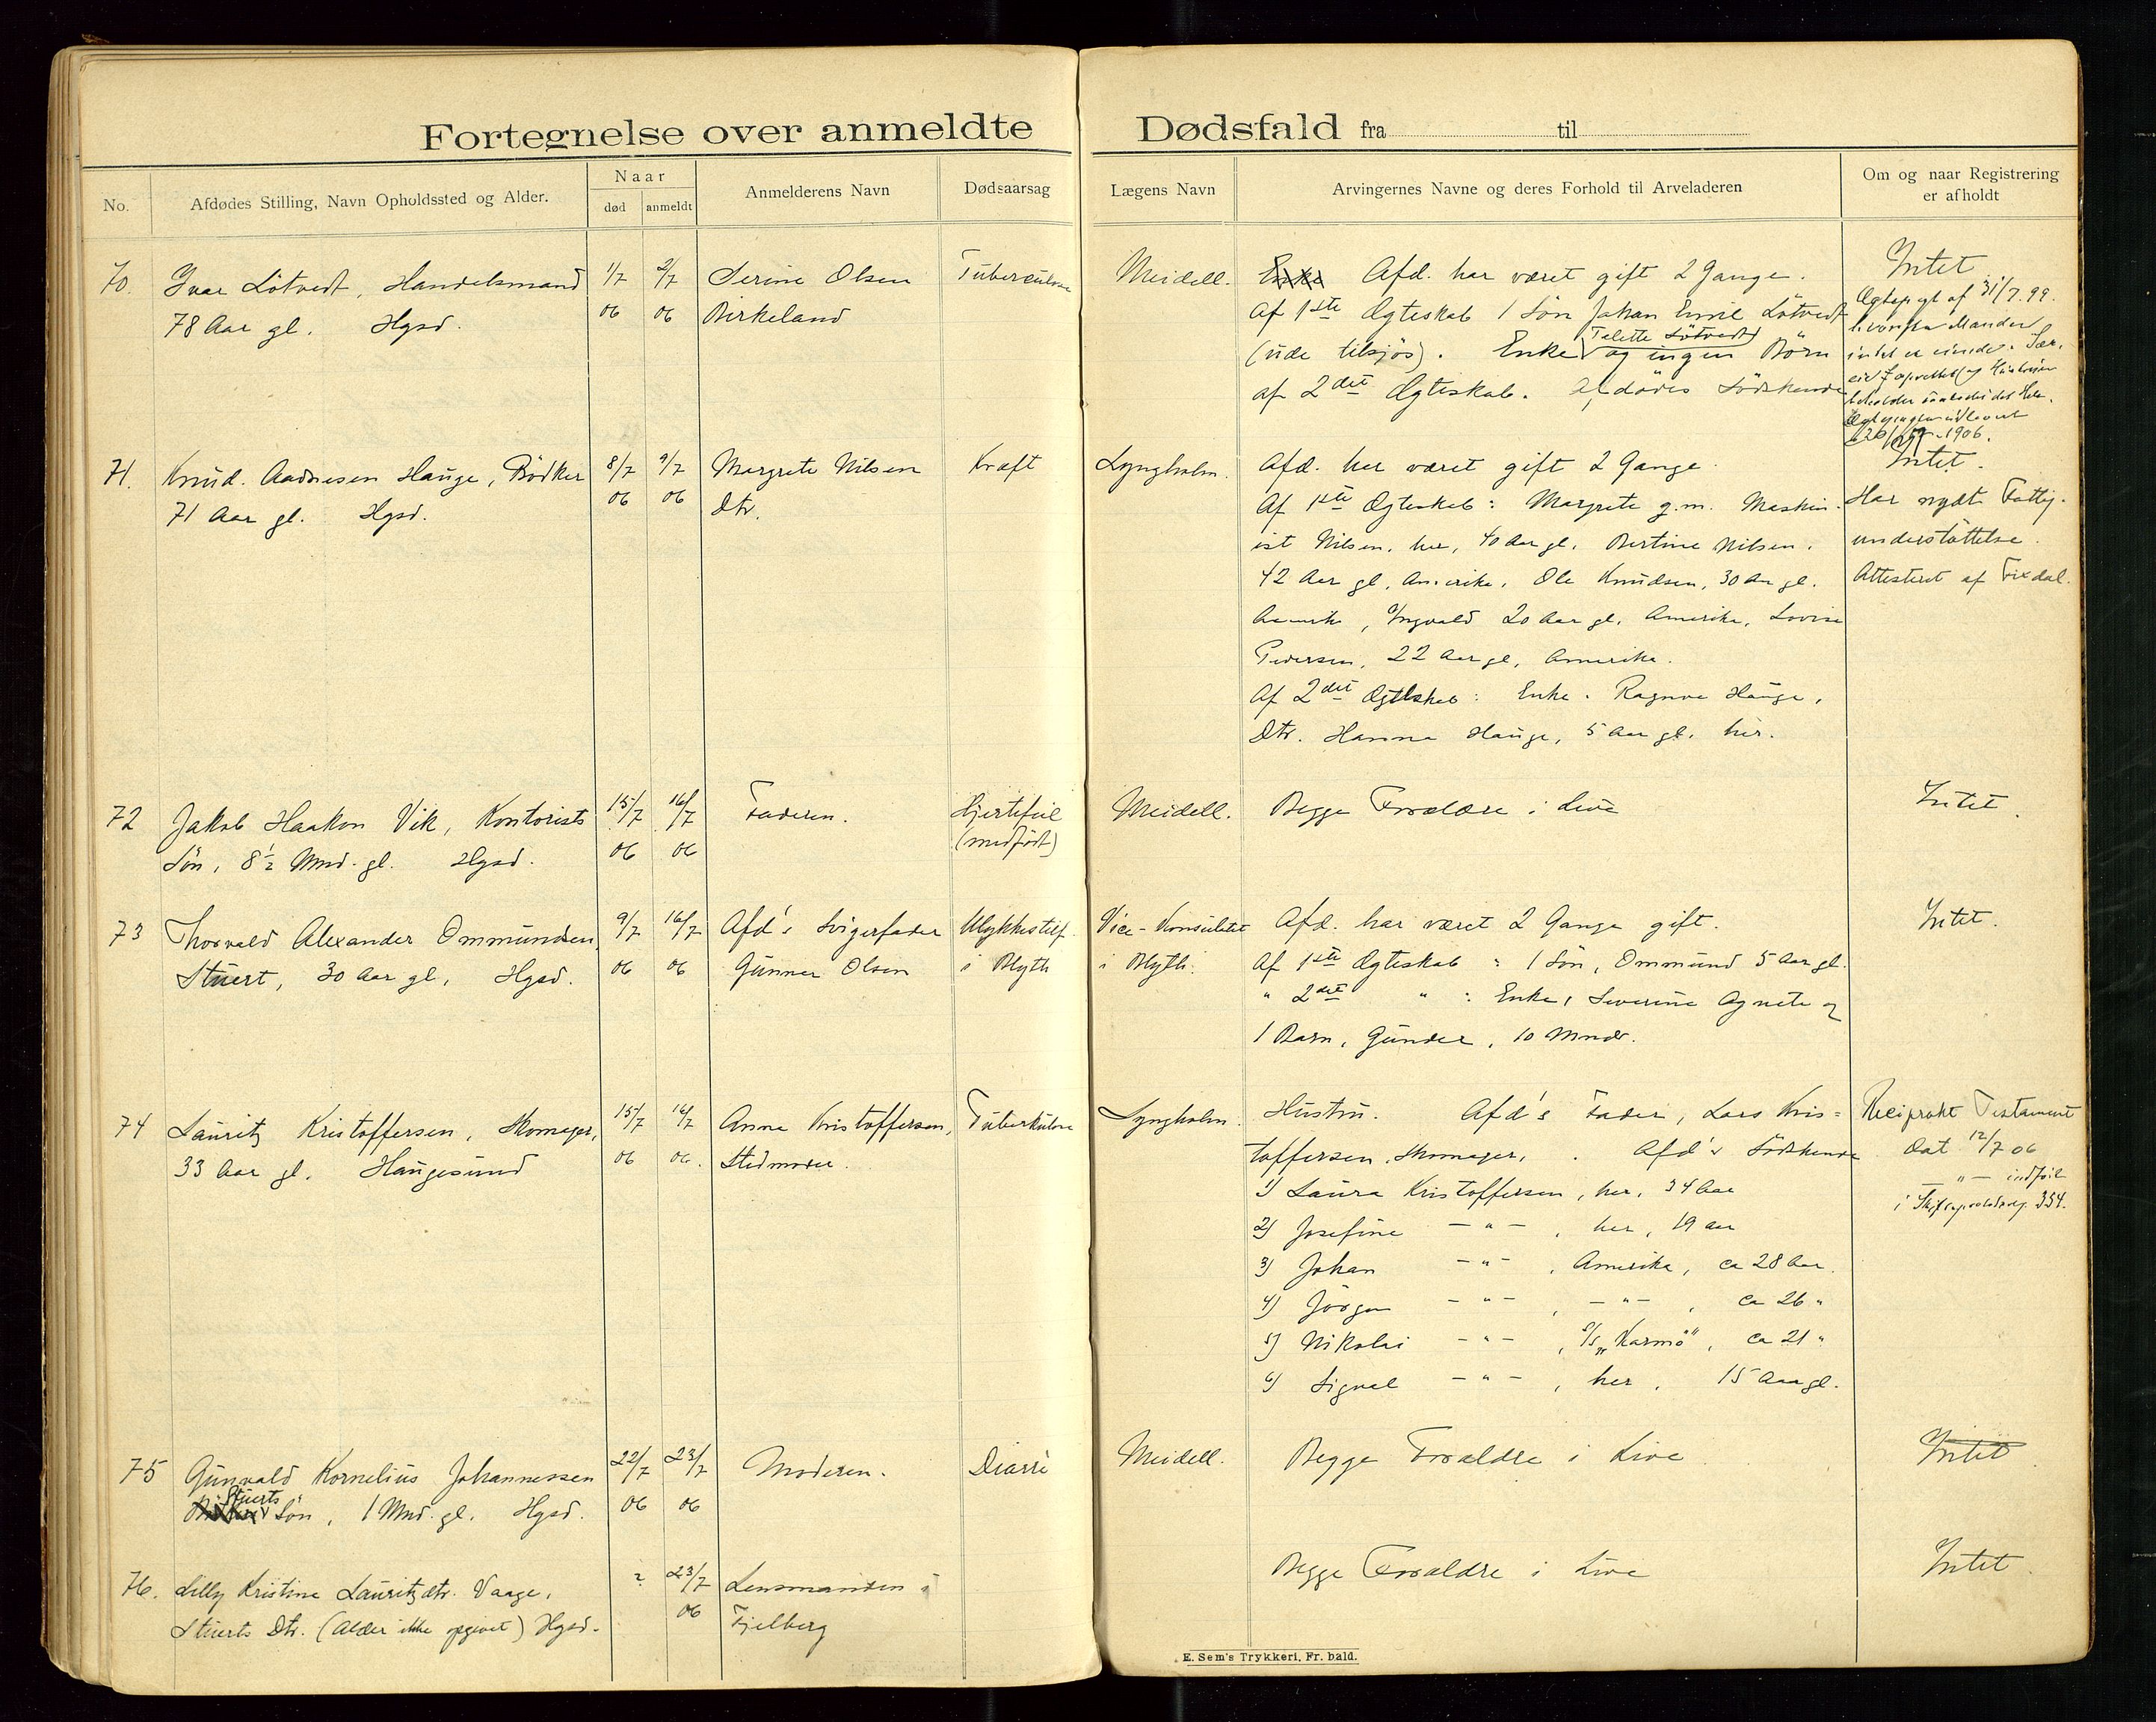 Fortegnelse over anmeldte Dødsfald fra til
No.
Afdødes Stilling, Navn Opholdssted og Alder.
Naar
død
anmeldt
Anmelderens Navn
Dødsaarsag
Lægens Navn
Arvingernes Navne og deres Forhold til Arveladeren
Om og naar Registrering
er afholdt
70.
Ivar Lötvedt, Handelsmand
78 Aar gl. Hgsd.
1/7
06
2/7
06
Serine Olsen
Birkeland
Tuberculose
Meidell.
Enke Afd. har været gift 2 Gange.
Af 1ste Ægteskab 1 Sön Johan Emil Lötvedt
(ude tilsjös). Enke Telette Lötvedt og ingen Börn
af 2det Ægteskab. Afdödes Södskende
Intet
Ægtepgt af 31/7.99.
hvorfra Manden
intet er eiende. Sær-
eie oprettet og Hustruen
1906.
71.
Knud. Aadnesen Hauge, Bödker
71 Aar gl. Hgsd.
8/7
06
9/7
06
Margrete Nilsen
Dtr.
Kræft
Lyngholm.
Afd. har været gift 2 Gange.
Af 1ste Ægteskab: Margrete g.m. Maskin-
ist Nilsen, her, 40 Aar gl. Bertine Nilsen,
42 Aar gl, Amerika, Ole Knudsen, 30 Aar gl.
Amerika, Ingvald 20 Aar gl. Amerika, Lovise
Pedersen, 22 Aar gl, Amerika.
Af 2det Ægteskab: Enke. Ragna Hauge,
Dtr. Hanna Hauge, 5 Aar gl. her.
Intet.
Har nydt Fattig-
understöttelse.
Attesteret af Fixdal.
72
Jakob Haakon Vik, Kontorists
Sön, 8½ Mnd. gl. Hgsd.
15/7
06
16/7
06
Faderen.
Hjertefeil
(medfödt)
Meidell.
Begge Forældre i Live
Intet.
73
Thorvald Alexander Ommundsen
Stuert, 30 Aar gl, Hgsd.
9/7
06
16/7
06
Afd's Svigerfader
Gunner Olsen
Ulykkestilf.
i Blyth
Vice-Konsulatet
i Blyth.
Afd. har været 2 Gange gift.
Af 1ste Ægteskab : 1 Sön, Ommund 5 Aar gl.
" 2det " : Enke, Severine Agnete og
1 Barn, Gunder, 10 Mndr.
Intet.
74
Lauritz Kristoffersen, Skomager,
33 Aar gl. Haugesund
15/7
06
16/7
06.
Anna Kristoffersen,
Stedmoder.
Tuberkulose
Lyngholm.
Hustru. Afd's Fader, Lars Kris=
toffersen, Skomager, . Afd's Södskende
1) Laura Kristoffersen, her, 34 Aar
2) Josefine — " — , her, 19 aar
3) Johan — " — , Amerika, ca 28 Aar.
4) Jörgen — " — , — " — , ca 26 "
5) Nikolai — " — , S/S „Karmö", ca 21 "
6) Sigval — " — , her, 15 Aar gl.
Reciprokt Testament
dat 12/7 06
— " — indföit
i 354.
75
Gunvald Kornelius Johannessen
Stuerts
Sön, 1 Mnd. gl. Hgsd.
22/7
06
23/7
06
Moderen.
Diarré
Meidell.
Begge Forældre i Live
Intet
76.
Lilly Kristine Lauritzdtr. Vaage,
Stuerts Dtr. (Alder ikke opgivet) Hgsd.
?
23/7
06
Lensmanden i
Fjelberg
Begge Forældre i Live
Intet
E. Sem's Trykkeri, Fr. hald.